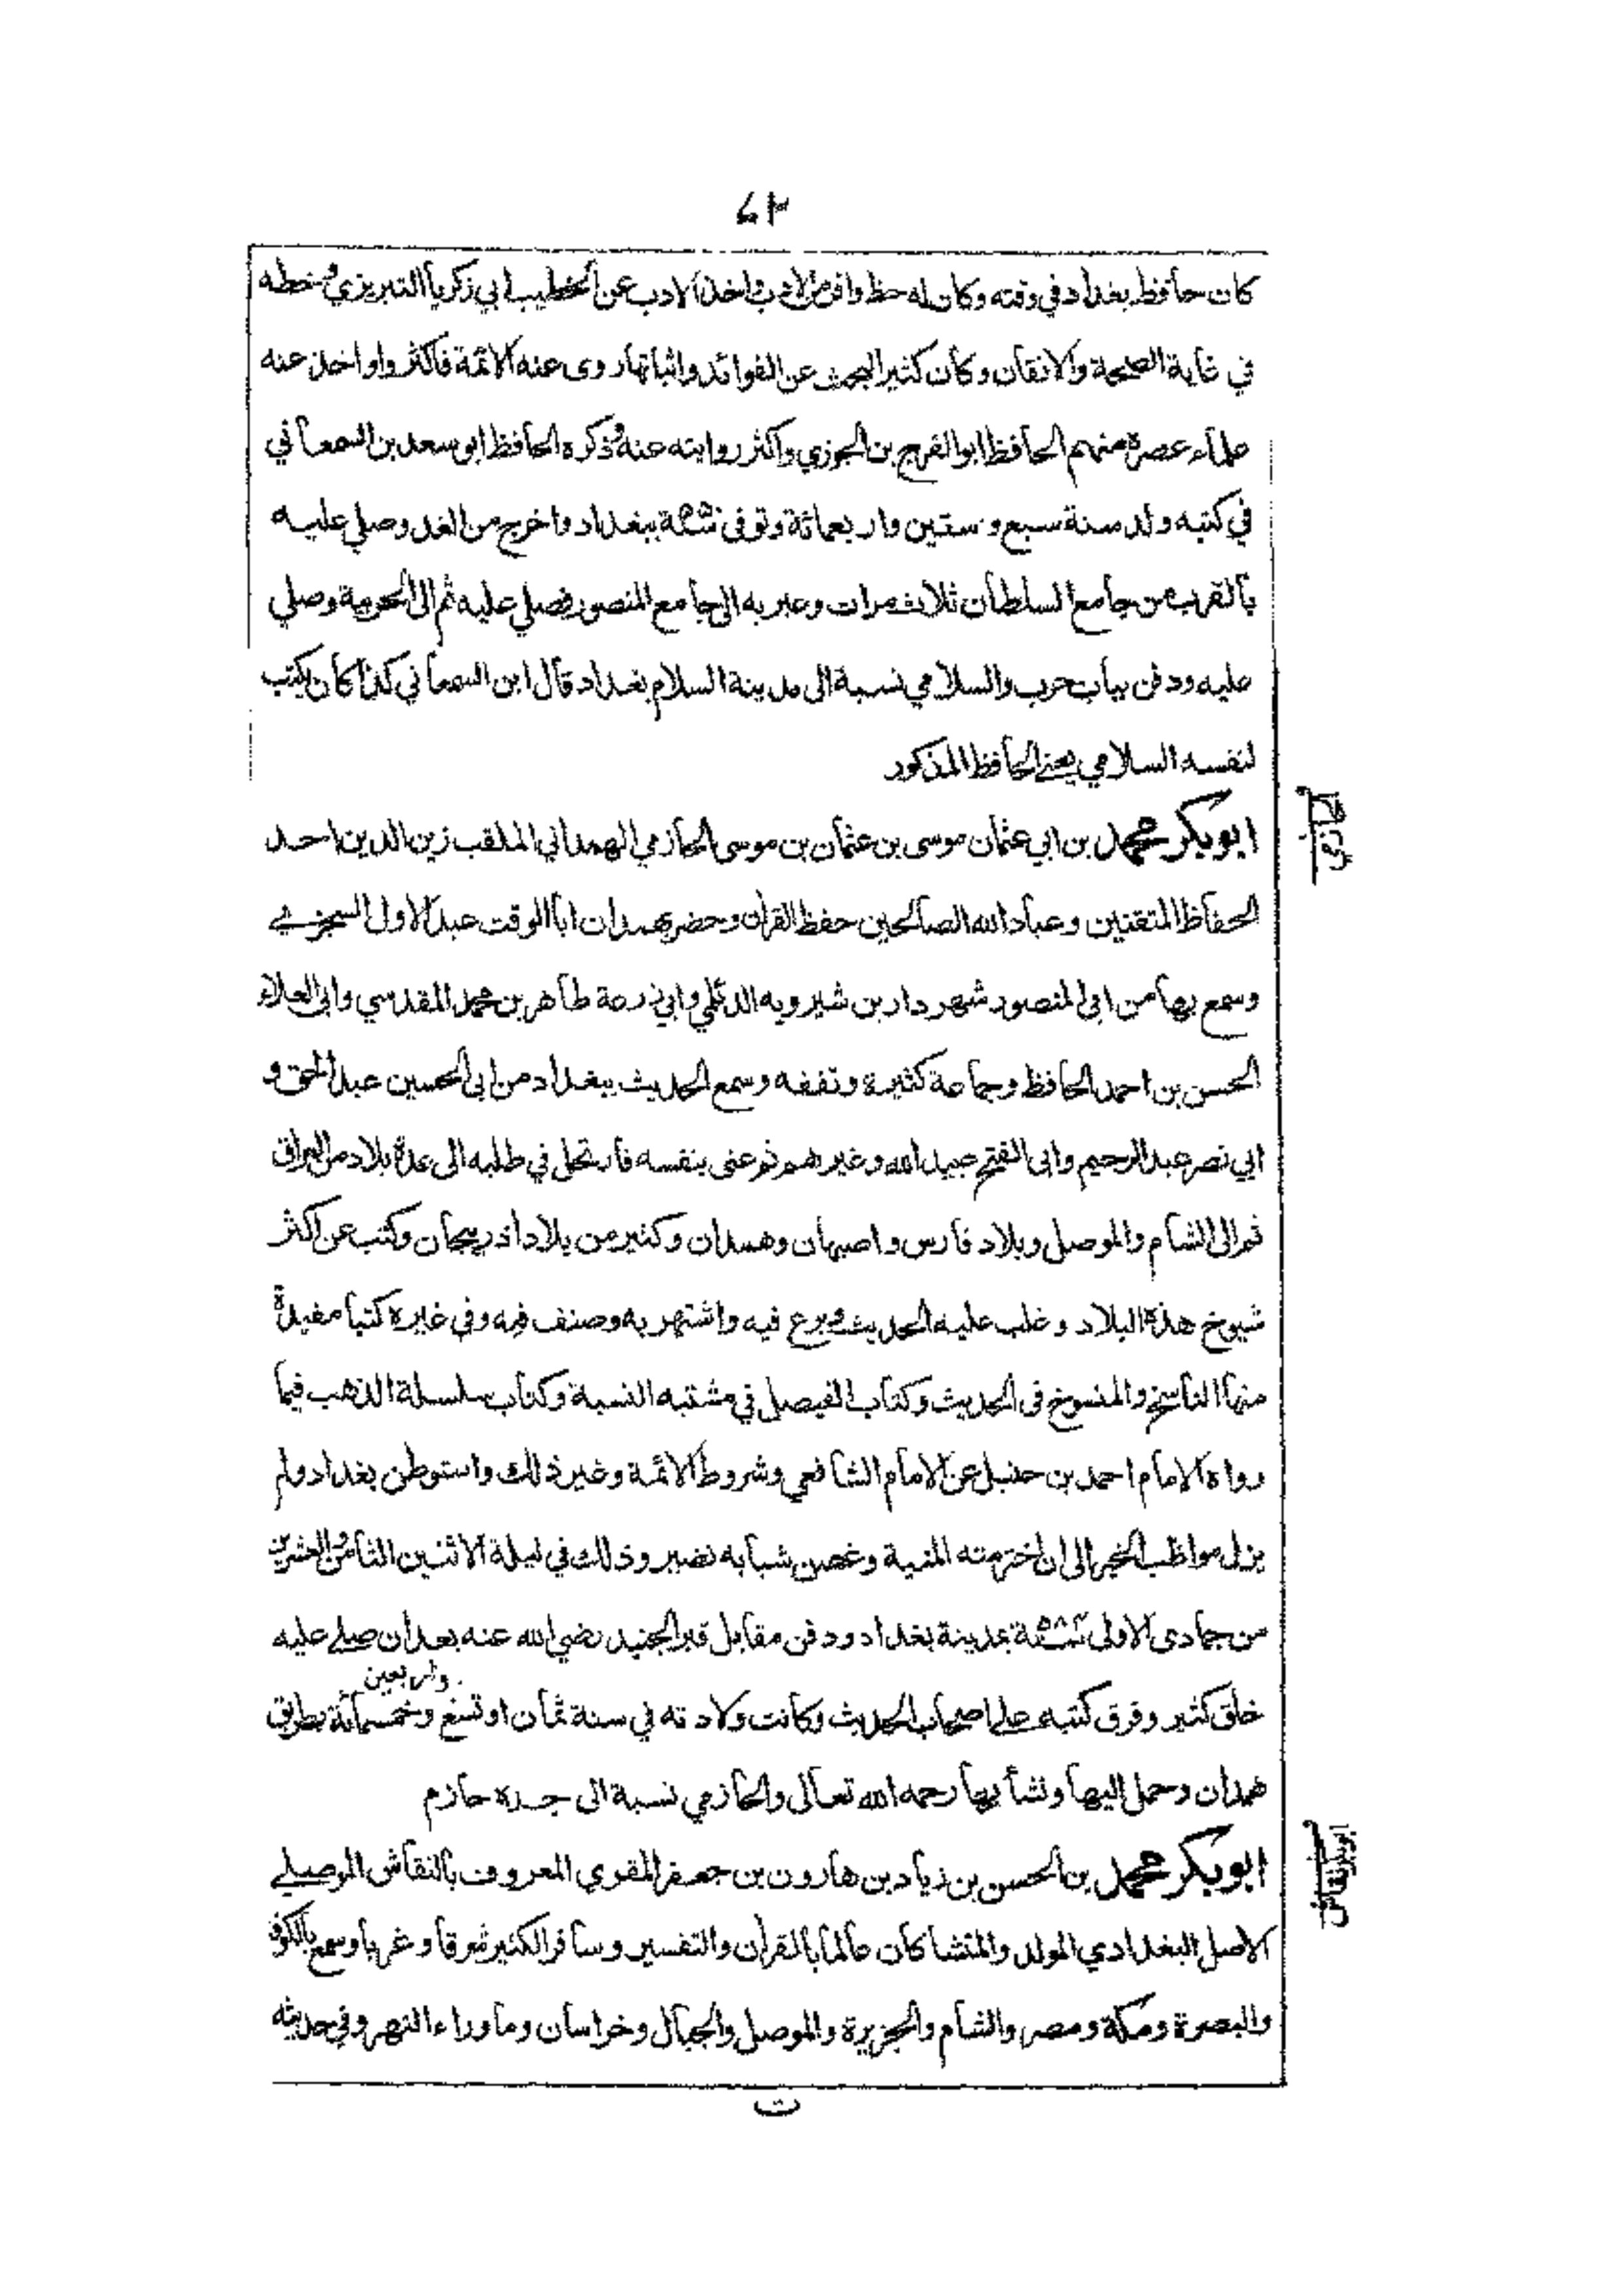 كان حافظ بغداد في وقته وكان له حظ وافر من الادب واخذ الادب عن الخطيب ابي زكريا التبريزي وخطه
في غاية الصحة والاتقان وكان كثير البحث عن الفوائد واثباتها روى عنه الائمة فاكثروا واخذ عنه
علماء عصره منهم الحافظ ابو الفرج بن الجوزي واكثر روايته عنه وذكره الحافظ ابو سعد بن السمعاني
في كتبه ولد سنة سبع وستين واربعمائة وتوفى ببغداد واخرج من الغد وصلي عليه
بالقرب من جامع السلطان ثلاث مرات وعبر به الى جامع المنصور فصلي عليه ثم الى الحربية وصلي
عليه ودفن بباب حرب والسلامي نسبة الى مدينة السلام بغداد قال ابن السمعاني كذا كان يكتب
لنفسه السلامي يعني الحافظ المذكور
الحازمي
ابو بكر محمد بن ابي عثمان موسى بن عثمان بن موسى الحازمي الهمداني الملقب زين الدين احد
الحفاظ المتقنين وعباد الله الصالحين حفظ القران وحضر بهمدان ابا الوقت عبد الاول السجزي
وسمع بها من ابي المنصور شهردار بن شيرويه الديلمي وابي زرعة طاهر بن محمد المقدسي وابي العلاء
الحسن بن احمد الحافظ وجماعة كثيرة وتفقه وسمع الحديث ببغداد من ابي الحسين عبد الحق و
ابي نصر عبد الرحيم وابى الفتح عبيد الله وغيرهم ثم عنى بنفسه فارتحل في طلبه الى عدة بلاد من العراق
ثم الى الشام والموصل وبلاد فارس واصبهان وهمدان وكثير من بلاد اذربيجان وكتب عن اكثر
شيوخ هذه البلاد وغلب عليه الحديث وبرع فيه واشتهر به وصنف فيه وفي غيره كتبا مفيدة
منها الناسخ والمنسوخ فى الحديث وكتاب الفيصل في مشتبه النسبة وكتاب سلسلة الذهب فيما
رواه الامام احمد بن حنبل عن الامام الشافعي وشروط الائمة وغير ذلك واستوطن بغداد ولم
يزل مواظب الخير الى ان اخترمته المنية وغصن شبابه نضير وذلك في ليلة الاثنين الثامن والعشرين
من جمادى الاولى بمدينة بغداد ودفن مقابل قبر الجنيد رضي الله عنه بعد ان صلى عليه
خلق كثير وفرق كتبه على اصحاب الحديث وكانت ولادته في سنة ثمان او تسع واربعين وخمسمائة بطريق
همدان وحمل اليها ونشأ بها رحمه الله تعالى والحازمي نسبة الى جده حازم
ابو بكر محمد بن الحسن بن زياد بن هارون بن جعفر المقري المعروف بالنقاش الموصلي
الاصل البغدادي المولد والمنشا كان عالما بالقران والتفسير وسافر الكثير شرقا وغربا وسمع بالكوفة
والبصرة ومكة ومصر والشام والجزيرة والموصل والجبال وخراسان وما وراء النهر وفي حديثه
ت